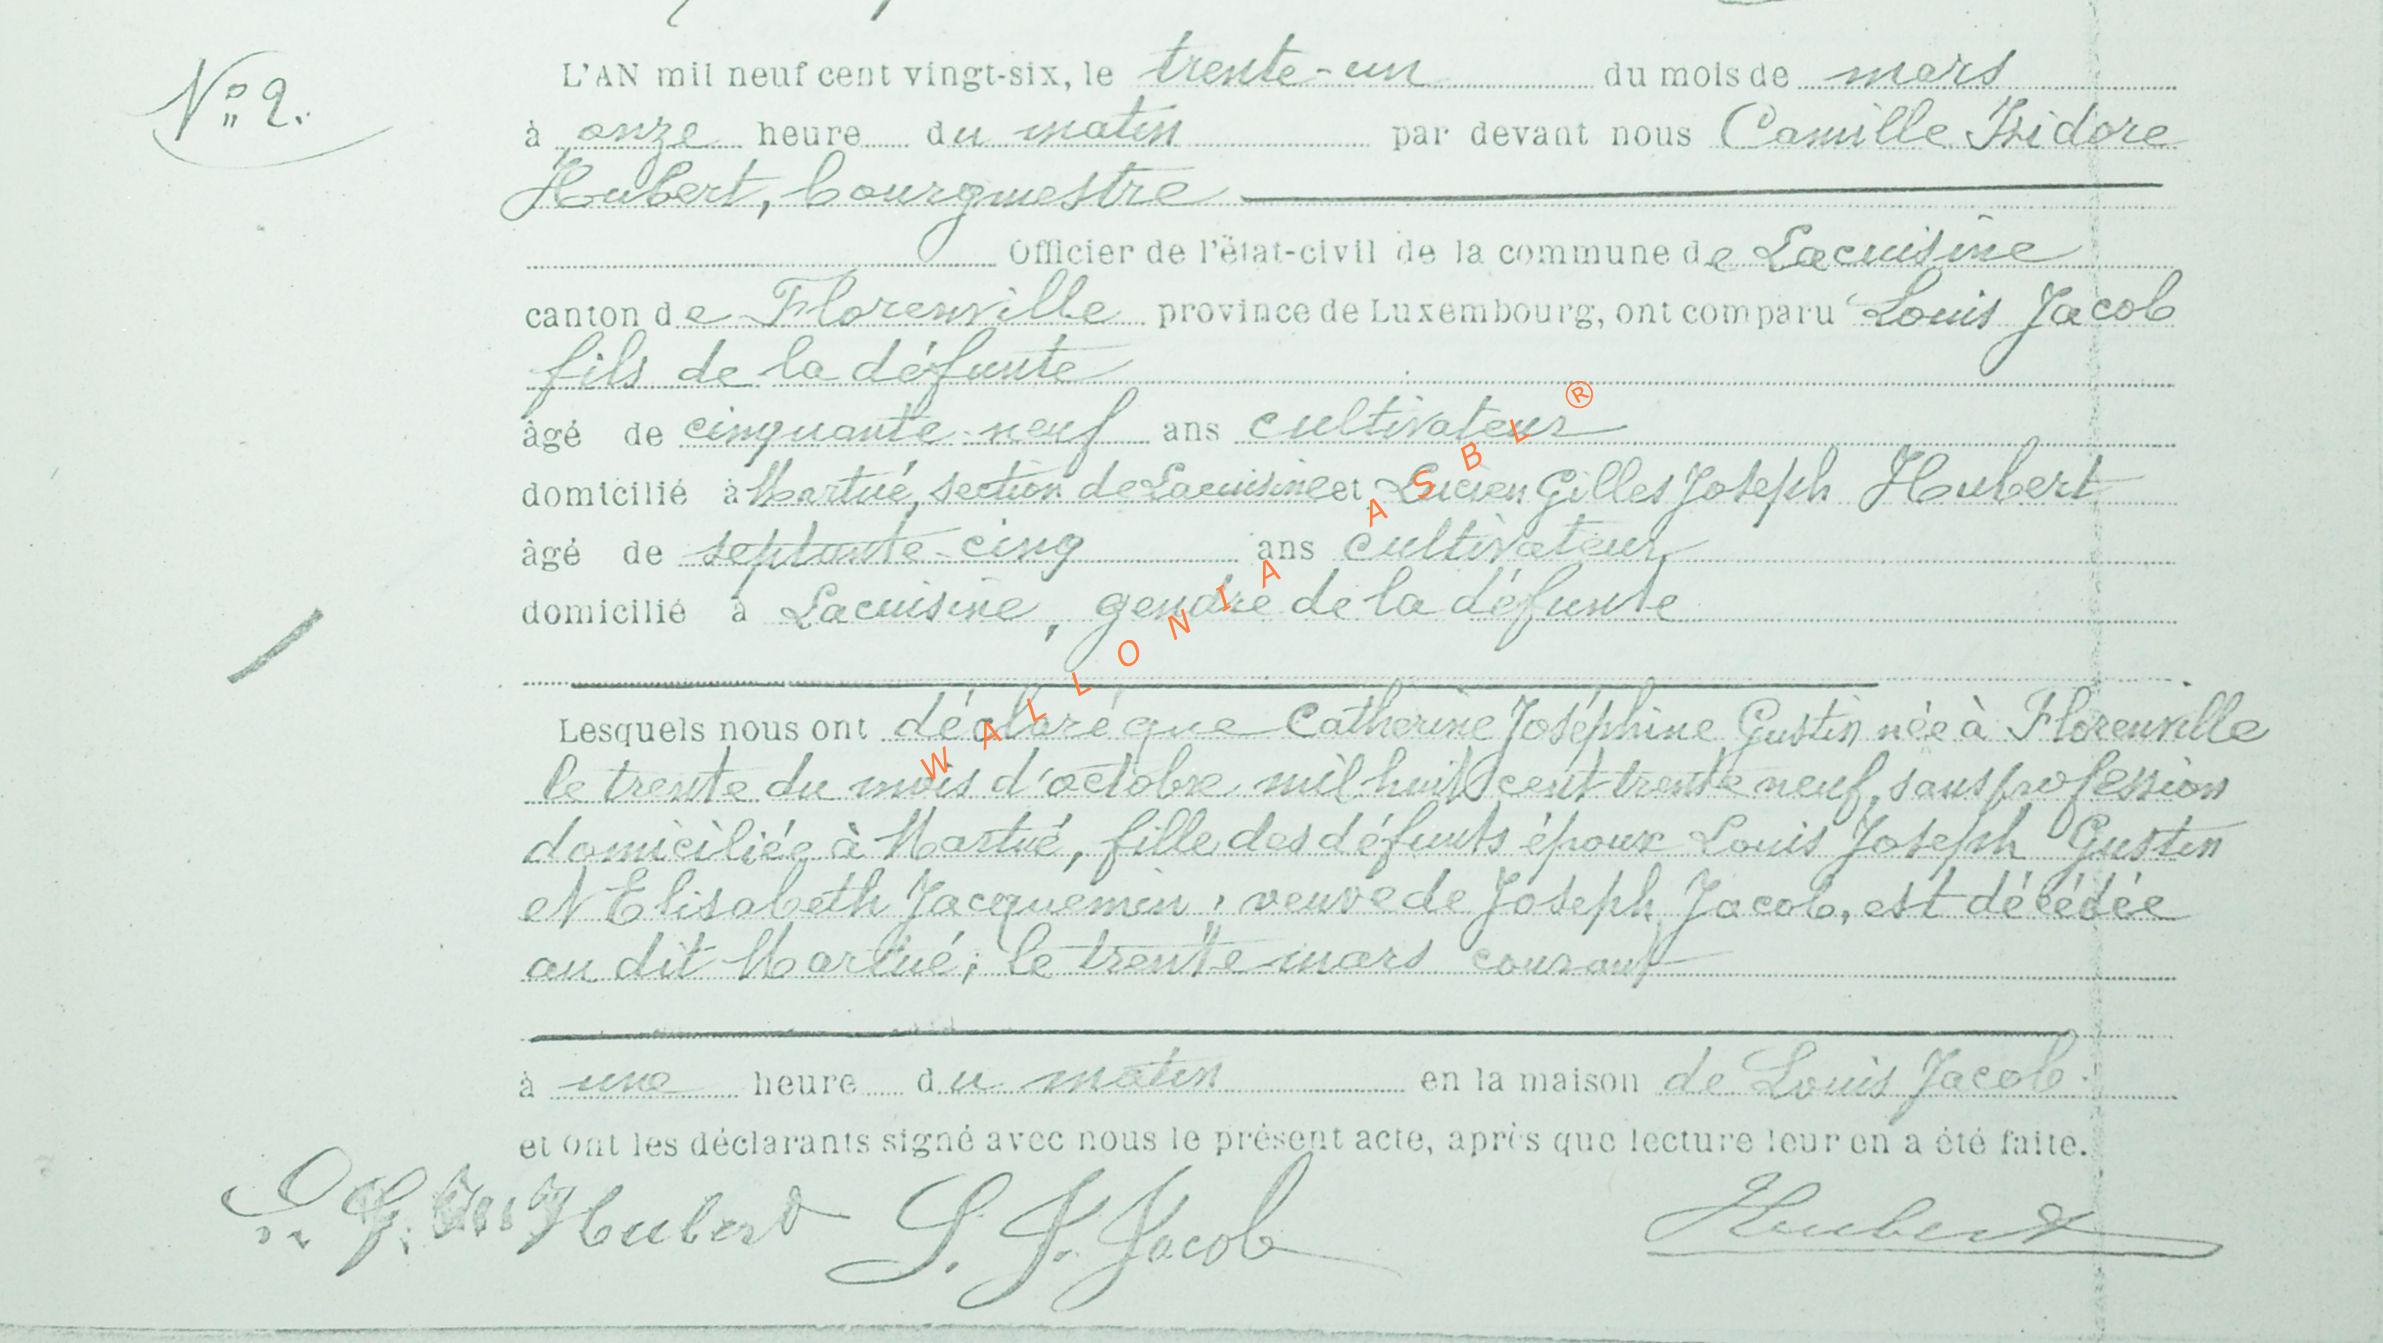 Nº 2.
L'AN mil neuf cent vingt-six, le trente-un du mois de mars
à onze heure du matin par devant nous Camille Isidore
Hubert, bourgmestre
Officier de l'état-civil de la commune de Lacuisine
canton de Florenville province de Luxembourg, ont comparu Louis Jacob
fils de la défunte
âgé de cinquante-neuf ans cultivateur
domicilié à Martué, section de Lacuisine et Lucien Gilles Joseph Hubert
âgé de septante-cinq ans cultivateur
domicilié à Lacuisine, gendre de la défunte
Lesquels nous ont déclaré que Catherine Joséphine Gustin née à Florenville
le trente du mois d'octobre mil huit cent trente neuf, sans profession
domiciliée à Martué, fille des défunts époux Louis Joseph Gustin
et Elisabeth Jacquemin, veuve de Joseph Jacob, est décédée
au dit Martué, le trente mars courant
à une heure du matin en la maison de Louis Jacob.
et ont les déclarants signé avec nous le présent acte, après que lecture leur en a été faite.
L. G. Hubert L. J. Jacob Hubert
WALLONIA ASBL ®